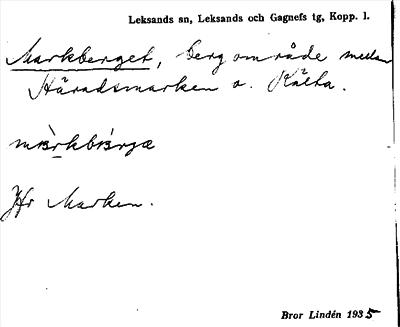 Leksands sn, Leksands och Gagnefs tg, Kopp. l.
Markberget, bergområde mellan
Häradsmarken o. Kälta.
Jfr Marken.
Bror Lindén 1935